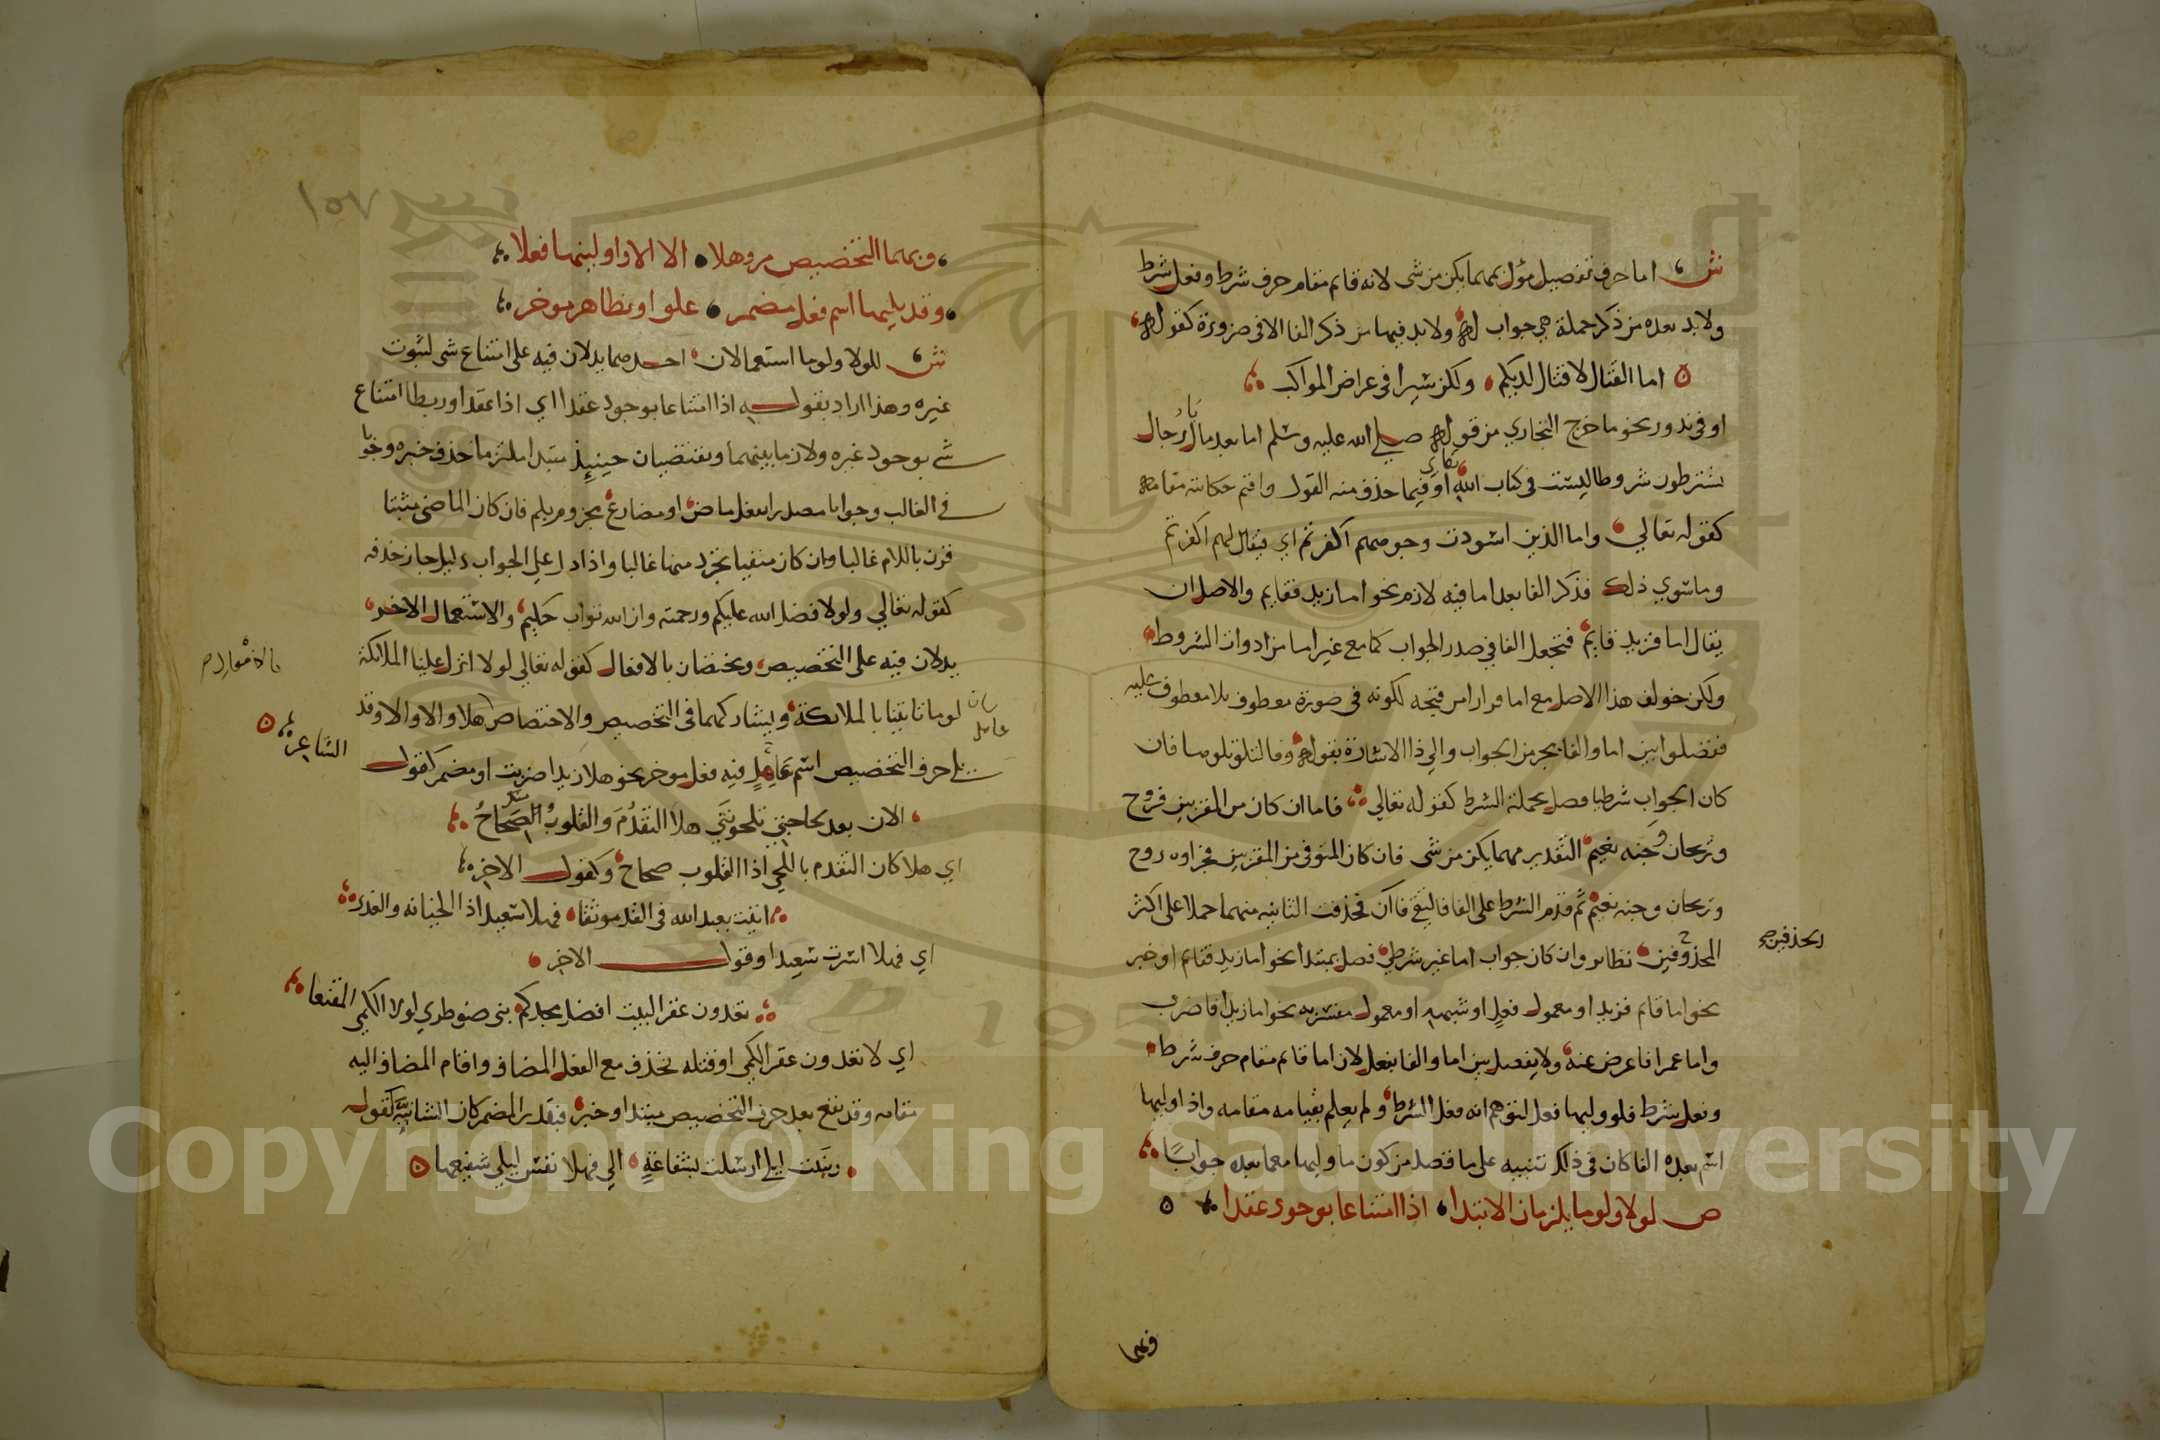 ش اما حرف تفصيل مؤل بمهما يكن من شي لانه قايم مقام حرف شرط وفعل شرط
ولا بد بعده من ذكر جملة هي جواب له ولا بد فيها من ذكر الفا الا في ضرورة كقوله
اما القتال لا قتال لديكم ولكن سيرا في عراض المواكب
او في ندور نحو ما خرج البخاري من قوله صلى الله عليه وسلم اما بعد ما بال رجال
يشترطون شروطا ليست في كتاب الله تعالى او فيما حذف منه القول واقيم حكايته مقامه
كقوله تعالي واما الذين اسودت وجوههم اكفرتم اي فيقال لهم اكفرتم
وما سوي ذلك فذكر الفا بعد اما فيه لازم نحو اما زيد فقايم والاصل ان
يقال اما فزيد قايم فتجعل الفا في صدر الجواب كما مع غير اما من ادوات الشروط
ولكن خولف هذا الاصل مع اما فرارا من قبحه لكونه في صورة معطوف بلا معطوف عليه
ففصلوا بين اما والفا بجز من الجواب والي ذا الاشارة بقوله وفا لتلو تلوها فان
كان الجواب شرطيا فصل بجملة الشرط كقوله تعالي فاما ان كان من المقربين فروح
وريحان وجنه نعيم التقدير مهما يكن من شي فان كان المتوفي من المقربين فجزاوه روح
وريحان وجنه نعيم ثم قدم الشرط على الفا فالتقي فاان فحذفت الثانيه منهما حملا على اكثر
الحذفين
المحذوفين نظاير وان كان جواب اما غير شرطي فصل بمبتدا نحو اما زيد فقايم او خبر
نحو اما قايم فزيد او معمول فعل او شبهه او معمول مفسر به نحو اما زيدا فاضرب
واما عمرا فاعرض عنه ولا يفصل بين اما والفا بفعل لان اما قايم مقام حرف شرط
وفعل شرط فلو وليها فعل لتوهم انه فعل الشرط ولم يعلم بقيامه مقامه واذا وليها
اسم بعده الفا كان في ذلك تنبيه على ما قصد من كون ما وليها مع ما بعده جوابا
ص لولا ولوما يلزمان الابتدا اذا امتناعا بوجود عقدا
وبهما
١٥٧
وبهما التخضيض مز وهلا الا الا واولينها فعلا
وقد يليها اسم فعل مضمر علق او بظاهر موخر
ش للولا ولوما استعمالان احدهما يدلان فيه على امتناع شي لثبوت
غيره وهذا اراد بقوله اذا امتناعا بوجود عقدا اي اذا عقدا وربطا امتناع
شي بوجود غيره ولازما بينهما ويقتضيان حينيذ مبتدا ملتزما حذف خبره وجوبا
في الغالب وجوابا مصدرا بفعل ماض او مضارع مجزوم بلم فان كان الماضي مثبتا
قرن باللام غالبا وان كان منفيا تجرد منها غالبا واذا دل على الجواب دليل جاز حذفه
كقوله تعالي ولولا فضل الله عليكم ورحمته وان الله تواب حكيم والاستعمال الاخر
يدلان فيه على التخصيص ويختصان بالافعال كقوله تعالي لولا انزل علينا الملائكة
لوما تاتينا بالملائكة ويشاركهما في التخصيص والاختصاص هلا والا والا وقد
يلي حرف التخصيص اسم عامل فيه فعل موخر نحو هلا زيدا ضربت او مضمر كقول
الشاعر
الان بعد لجاجتي تلحونني هلا التقدم والقلوب صحاح
اي هلا كان التقدم باللحي اذ القلوب صحاح وكقول الاخر
اتيت بعبد الله في القد موثقا فهلا سعيدا ذا الخيانه والغدر
اي فهلا اسرت سعيدا وقول الاخر
تعدون عقر البيت افضل مجدكم بني ضوطري لولا الكمي المقنعا
اي لا تعدون عقر الكمي او قتله فحذف مع الفعل المضاف واقام المضاف اليه
مقامه وقد يقع بعد حرف التخصيص مبتدا وخبر فيقدر المضمر كان الشانيه كقوله
ونبئت ليلي ارسلت بشفاعة الي فهلا نفس ليلي شفيعها